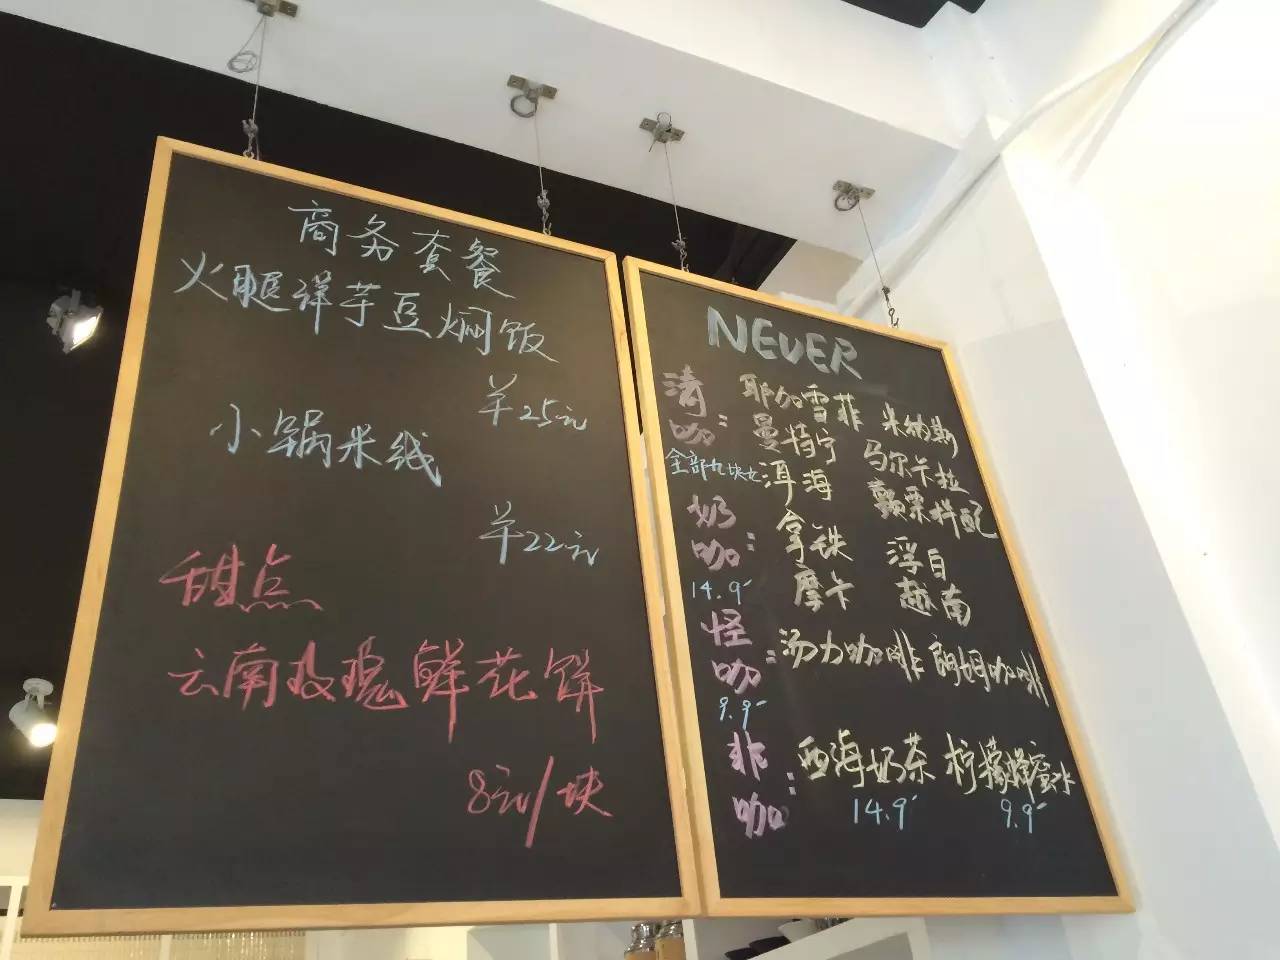 商务套餐
火腿洋芋豆焖饭
羊25元
小锅米线
羊22元
甜点
云南玫瑰鲜花饼
8元/块
NEVER
清咖：
全部九块九
耶加雪菲 米纳斯
曼特宁 马尔卡拉
洱海 颠栗拌配
奶咖：
14.9
拿铁 浮白
摩卡 越南
怪咖：
9.9
汤力咖啡 朗姆咖啡
非咖：
西海奶茶 柠檬蜂蜜水
14.9 9.9